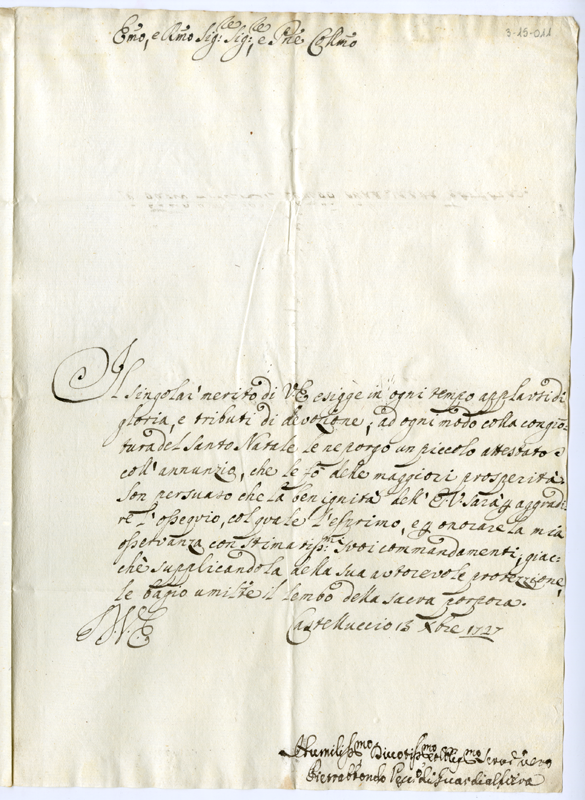 3-15-011
Emo, e Rmo Sig:re Sig:re, e Pne Collmo
Il singolar merito di V E esigge in ogni tempo applausi di
gloria, e tributi di devozione; ad ogni modo colla congion-
tura del Santo Natale le ne porgo un piccolo attestato
coll'annunzio, che le fò delle maggiori prosperità.
Son persuaso che la benignità dell' E V sarà p aggradi-
re l'ossequio, col quale l'esprimo, e p onorare la mia
osservanza con stimatiss:mi suoi commandamenti, giac-
chè supplicandola della sua autorevole protezzione,
le bagio umilte il lembo della sacra porpora.
D. V. E. Castelluccio 15 Xbre 1727
Humiliss:mo Divotiss:mo Obligmo Serv:e vero
Pietrabbondo Vesc:o di Guardialfiera